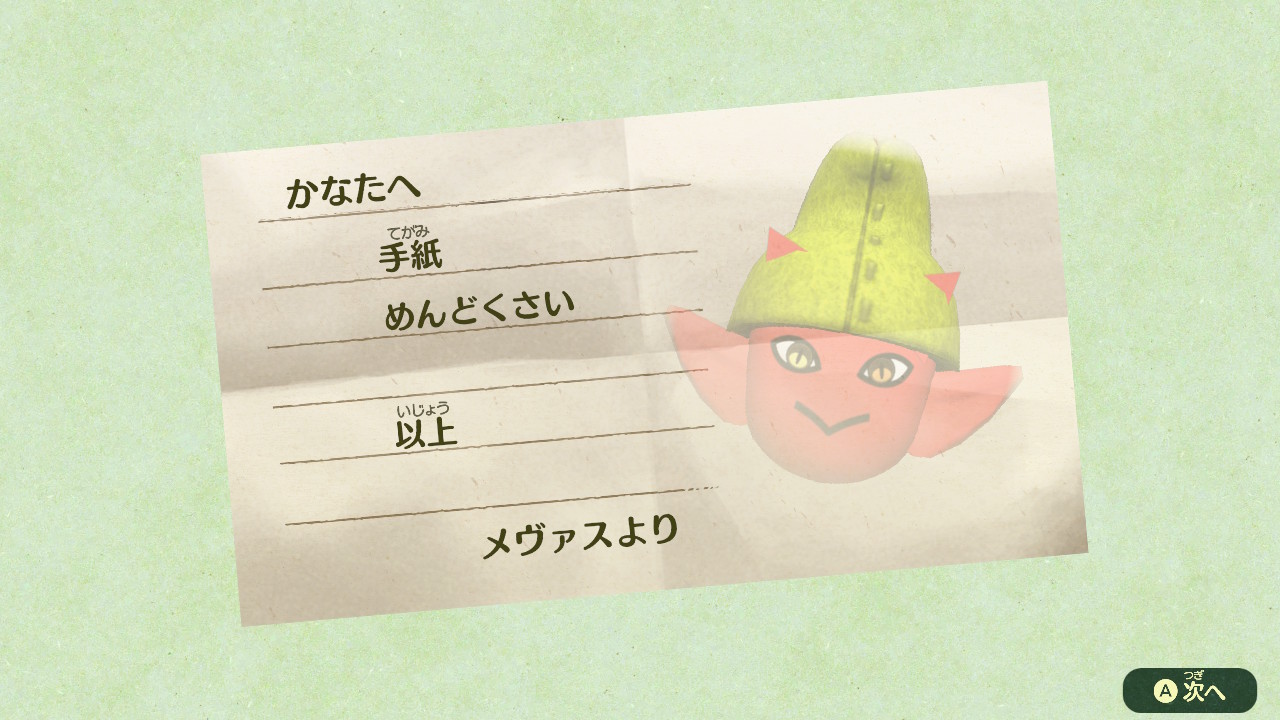 かなたへ
てがみ
手紙
めんどくさい
いじょう
以上
メヴァスより
つぎ
A 次へ